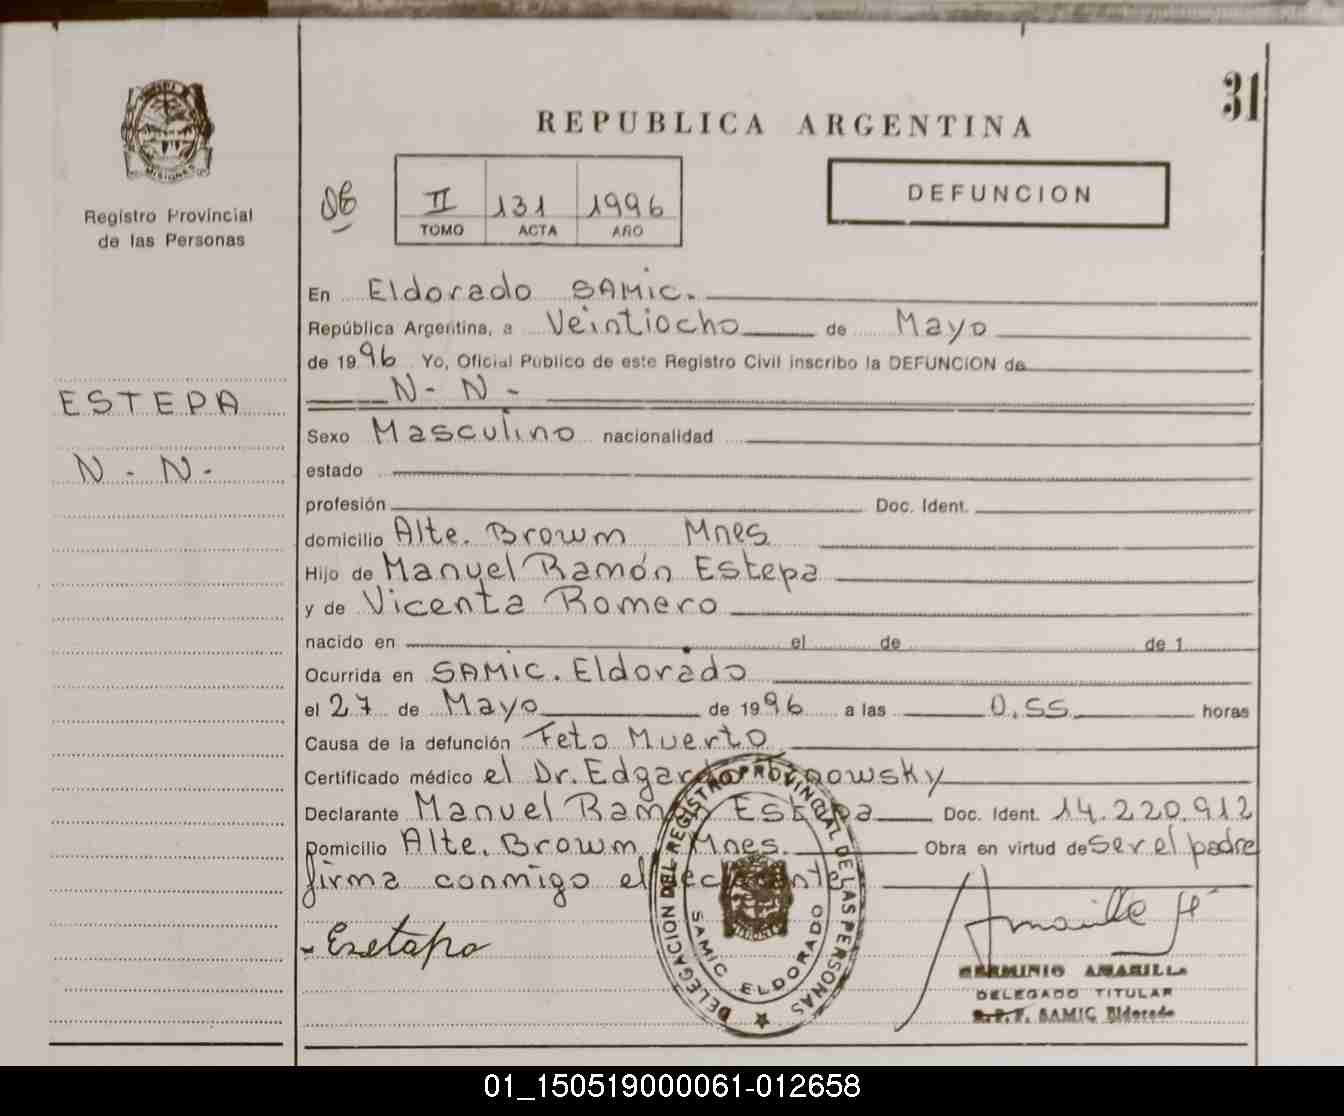 31
REPUBLICA ARGENTINA
MISIONES
Registro Provincial
de las Personas
DEFUNCION
II 131 1996
TOMO ACTA AÑO
En Eldorado SAMic.
República Argentina, a Veintiocho de Mayo
de 1996 Yo, Oficial Publico de este Registro Civil inscribo la DEFUNCION de
N- N-
ESTEPA
N-N-
Sexo Masculino nacionalidad
estado
profesión Doc. Ident.
domicilio Alte. Browm Mnes
Hijo de Manuel Ramón Estepa
y de Vicenta Romero
nacido en el de de 1
Ocurrida en SAMic. Eldorado
el 27 de Mayo de 1996 a las 0,55 horas
Causa de la defunción Feto Muerto
Certificado médico el Dr. Edgardo
Declarante Manuel Ramón Estepa Doc. Ident. 14.220.912
Domicilio Alte. Browm Mnes. Obra en virtud de Ser el padre
firma conmigo el declarante
DELEGACION DEL REGISTRO PROVINCIAL DE LAS PERSONAS
SAMIC ELDORADO
HERMINIO AMARILLA
DELEGADO TITULAR
R.P.P. SAMIC Eldorado
01_150519000061-012658